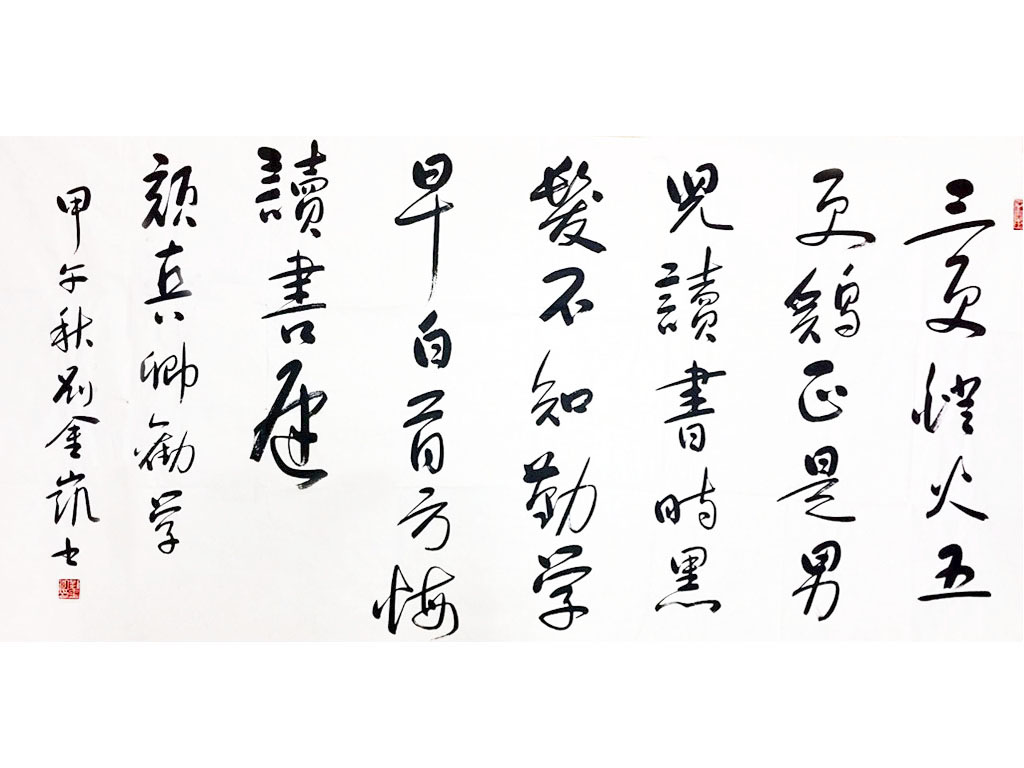 三更燈火五
更鷄正是男
児讀書時黑
髮不知勤学
早白首方悔
讀書遲
顔真卿勸学
甲午秋刘金凱书